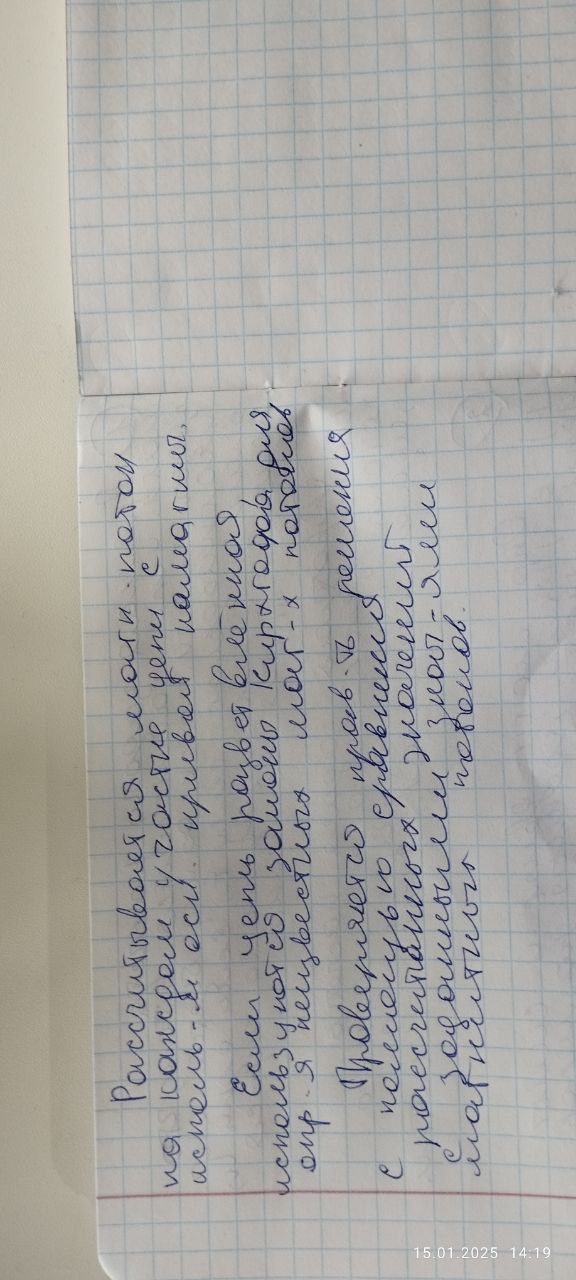 Рассчитывается магн. поток
на каждом участке цепи с
использ-м осн. кривой намагнич.
Если цепь разветвлённой
используются законы Кирхгофа для
опр-я неизвестных маг-х потоков
Проверяется прав-ть решения
с помощью сравнения
рассчитанных значений
с заданными знач-ями
магнитных потоков.
15.01.2025 14:19